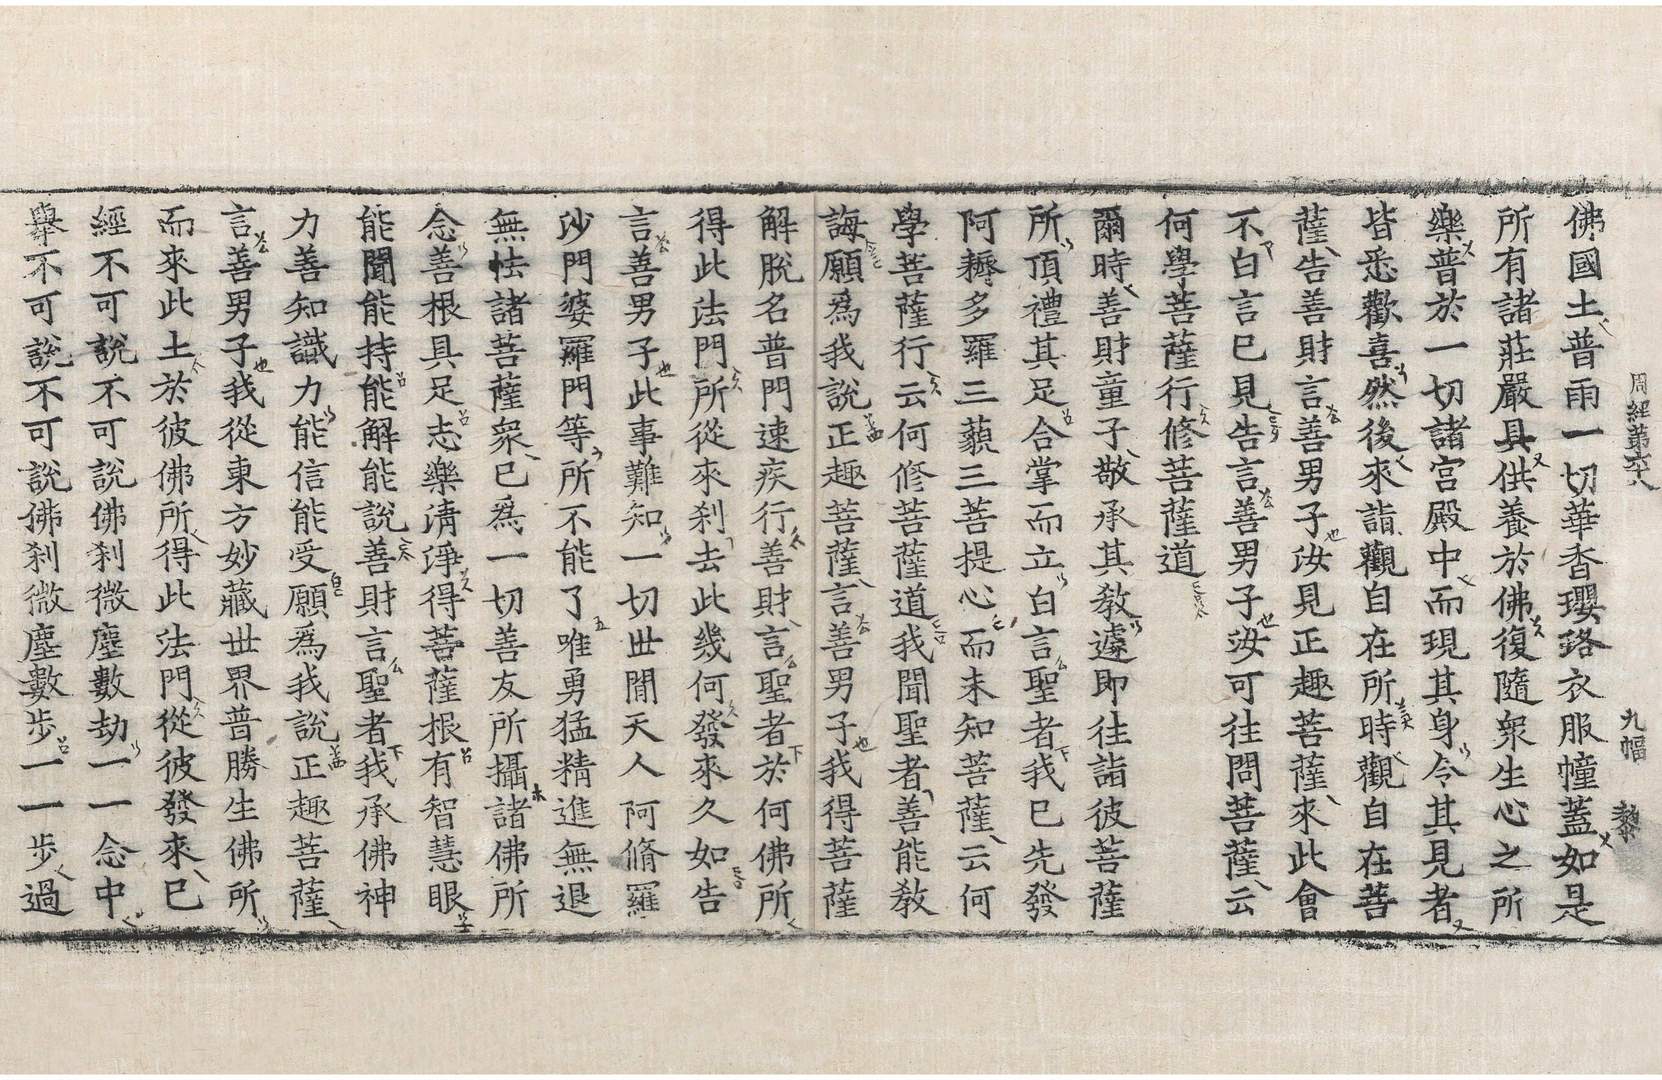 周經第六十八 九幅 黎
佛國土普雨一切華香瓔珞衣服幢蓋如是
所有諸莊嚴具供養於佛復隨衆生心之所
樂普於一切諸宮殿中而現其身令其見者
皆悉歡喜然後來詣觀自在所時觀自在菩
薩告善財言善男子汝見正趣菩薩來此會
不白言已見告言善男子汝可往問菩薩云
何學菩薩行修菩薩道
爾時善財童子敬承其教遽即往詣彼菩薩
所頂禮其足合掌而立白言聖者我已先發
阿耨多羅三藐三菩提心而未知菩薩云何
學菩薩行云何修菩薩道我聞聖者善能教
誨願爲我說正趣菩薩言善男子我得菩薩
解脫名普門速疾行善財言聖者於何佛所
得此法門所從來刹去此幾何發來久如告
言善男子此事難知一切世間天人阿脩羅
沙門婆羅門等所不能了唯勇猛精進無退
無怯諸菩薩衆已爲一切善友所攝諸佛所
念善根具足志樂淸淨得菩薩根有智慧眼
能聞能持能解能說善財言聖者我承佛神
力善知識力能信能受願爲我說正趣菩薩
言善男子我從東方妙藏世界普勝生佛所
而來此土於彼佛所得此法門從彼發來已
經不可說不可說佛刹微塵數劫一一念中
擧不可說不可說佛刹微塵數步一一步過